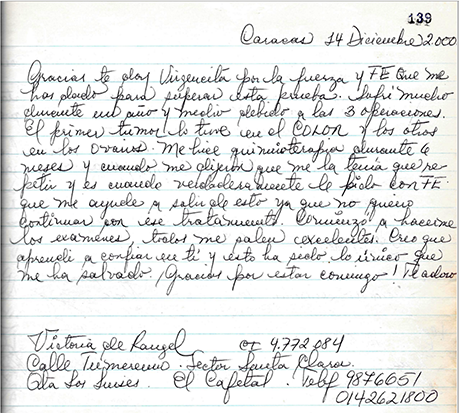 139
Caracas 14 Diciembre 2.000
Gracias te doy Virgencita por la fuerza y FE que me
has dado para superar esta prueba. Sufrí mucho
durante un año y medio debido a las 3 operaciones.
El primer tumor lo tuve en el COLON y los otros
en los Ovarios. Me hice quimioterapia durante 6
meses y cuando me dijeron que me la tenía que re
petir y es cuando verdaderamente le pido con FE
que me ayude a salir de esto ya que no quiero
continuar con ese tratamiento. Comienzo a hacerme
los exámenes, todos me salen excelentes. Creo que
aprendí a confiar en tí y esto ha sido lo único que
me ha salvado. ¡Gracias por estar conmigo! Te adoro
Victoria de Rangel CI 4.772.084
Calle Tumeremo. Sector Santa Clara.
Qta Los Suises. El Cafetal. Telf 9876651
0142621800